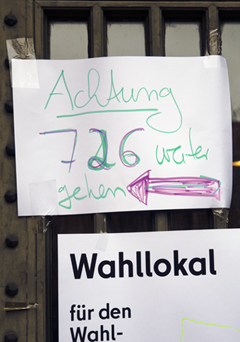 Achtung
726 weiter
gehen
Wahllokal
für den
Wahl-